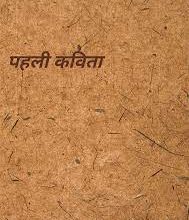 पहली कविता